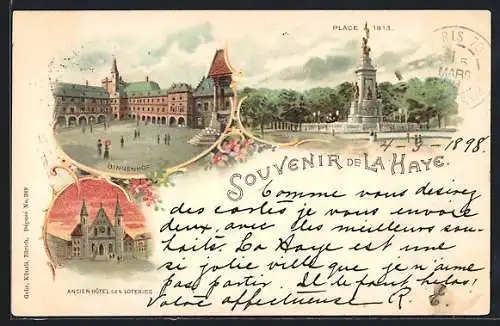 PLACE 1813.
RIS
MARS
BINNENHOF
4-3-1898
SOUVENIR DE LA HAYE.
Comme vous desirez
des cartes je vous envoie
deux avec des meilleurs sou-
haits. La Haye est une
si jolie ville que je n'aime
pas partir. Il le faut helas!
Votre affectueuse R.
ANCIEN HÔTEL DES LOTERIES
Gebr. Künzli, Zürich, Déposé No. 219